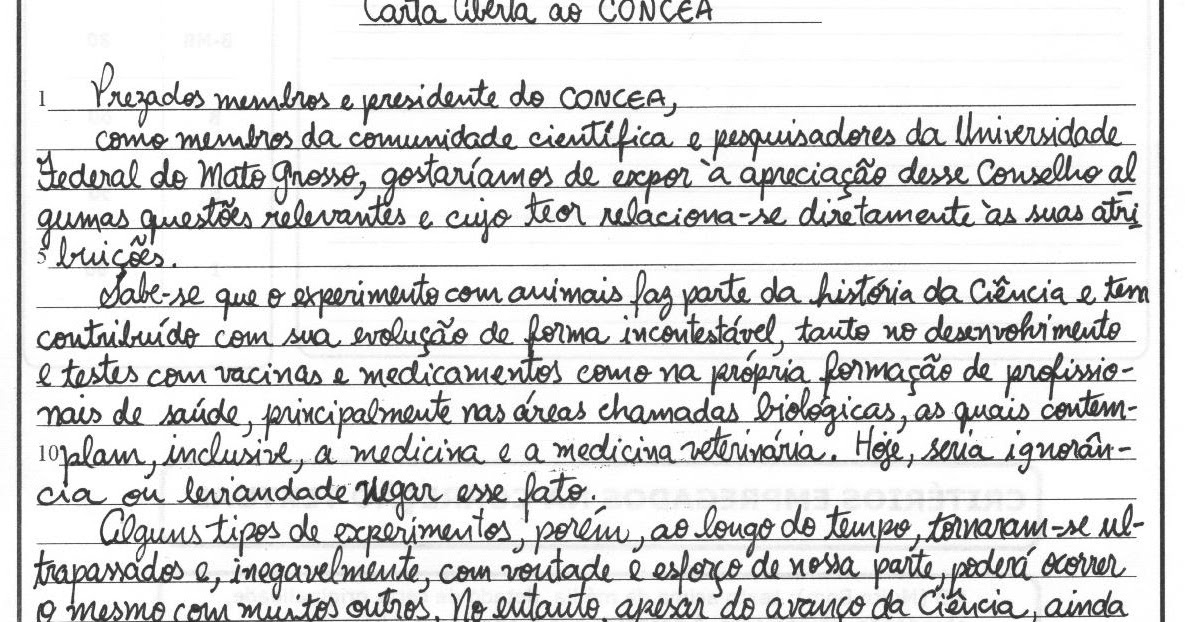 Carta Aberta ao CONCEA
1 Prezados membros e presidente do CONCEA,
como membros da comunidade científica e pesquisadores da Universidade
Federal do Mato Grosso, gostaríamos de expor à apreciação desse Conselho al
gumas questões relevantes e cujo teor relaciona-se diretamente às suas atri
5 buições.
Sabe-se que o experimento com animais faz parte da história da Ciência e tem
contribuído com sua evolução de forma incontestável, tanto no desenvolvimento
e testes com vacinas e medicamentos como na própria formação de profissio-
nais de saúde, principalmente nas áreas chamadas biológicas, as quais contem-
10 plam, inclusive, a medicina e a medicina veterinária. Hoje, seria ignorân-
cia ou leviandade negar esse fato.
Alguns tipos de experimentos, porém, ao longo do tempo, tornaram-se ul-
trapassados e, inegavelmente, com vontade e esforço de nossa parte, poderá ocorrer
o mesmo com muitos outros. No entanto, apesar do avanço da Ciência, ainda